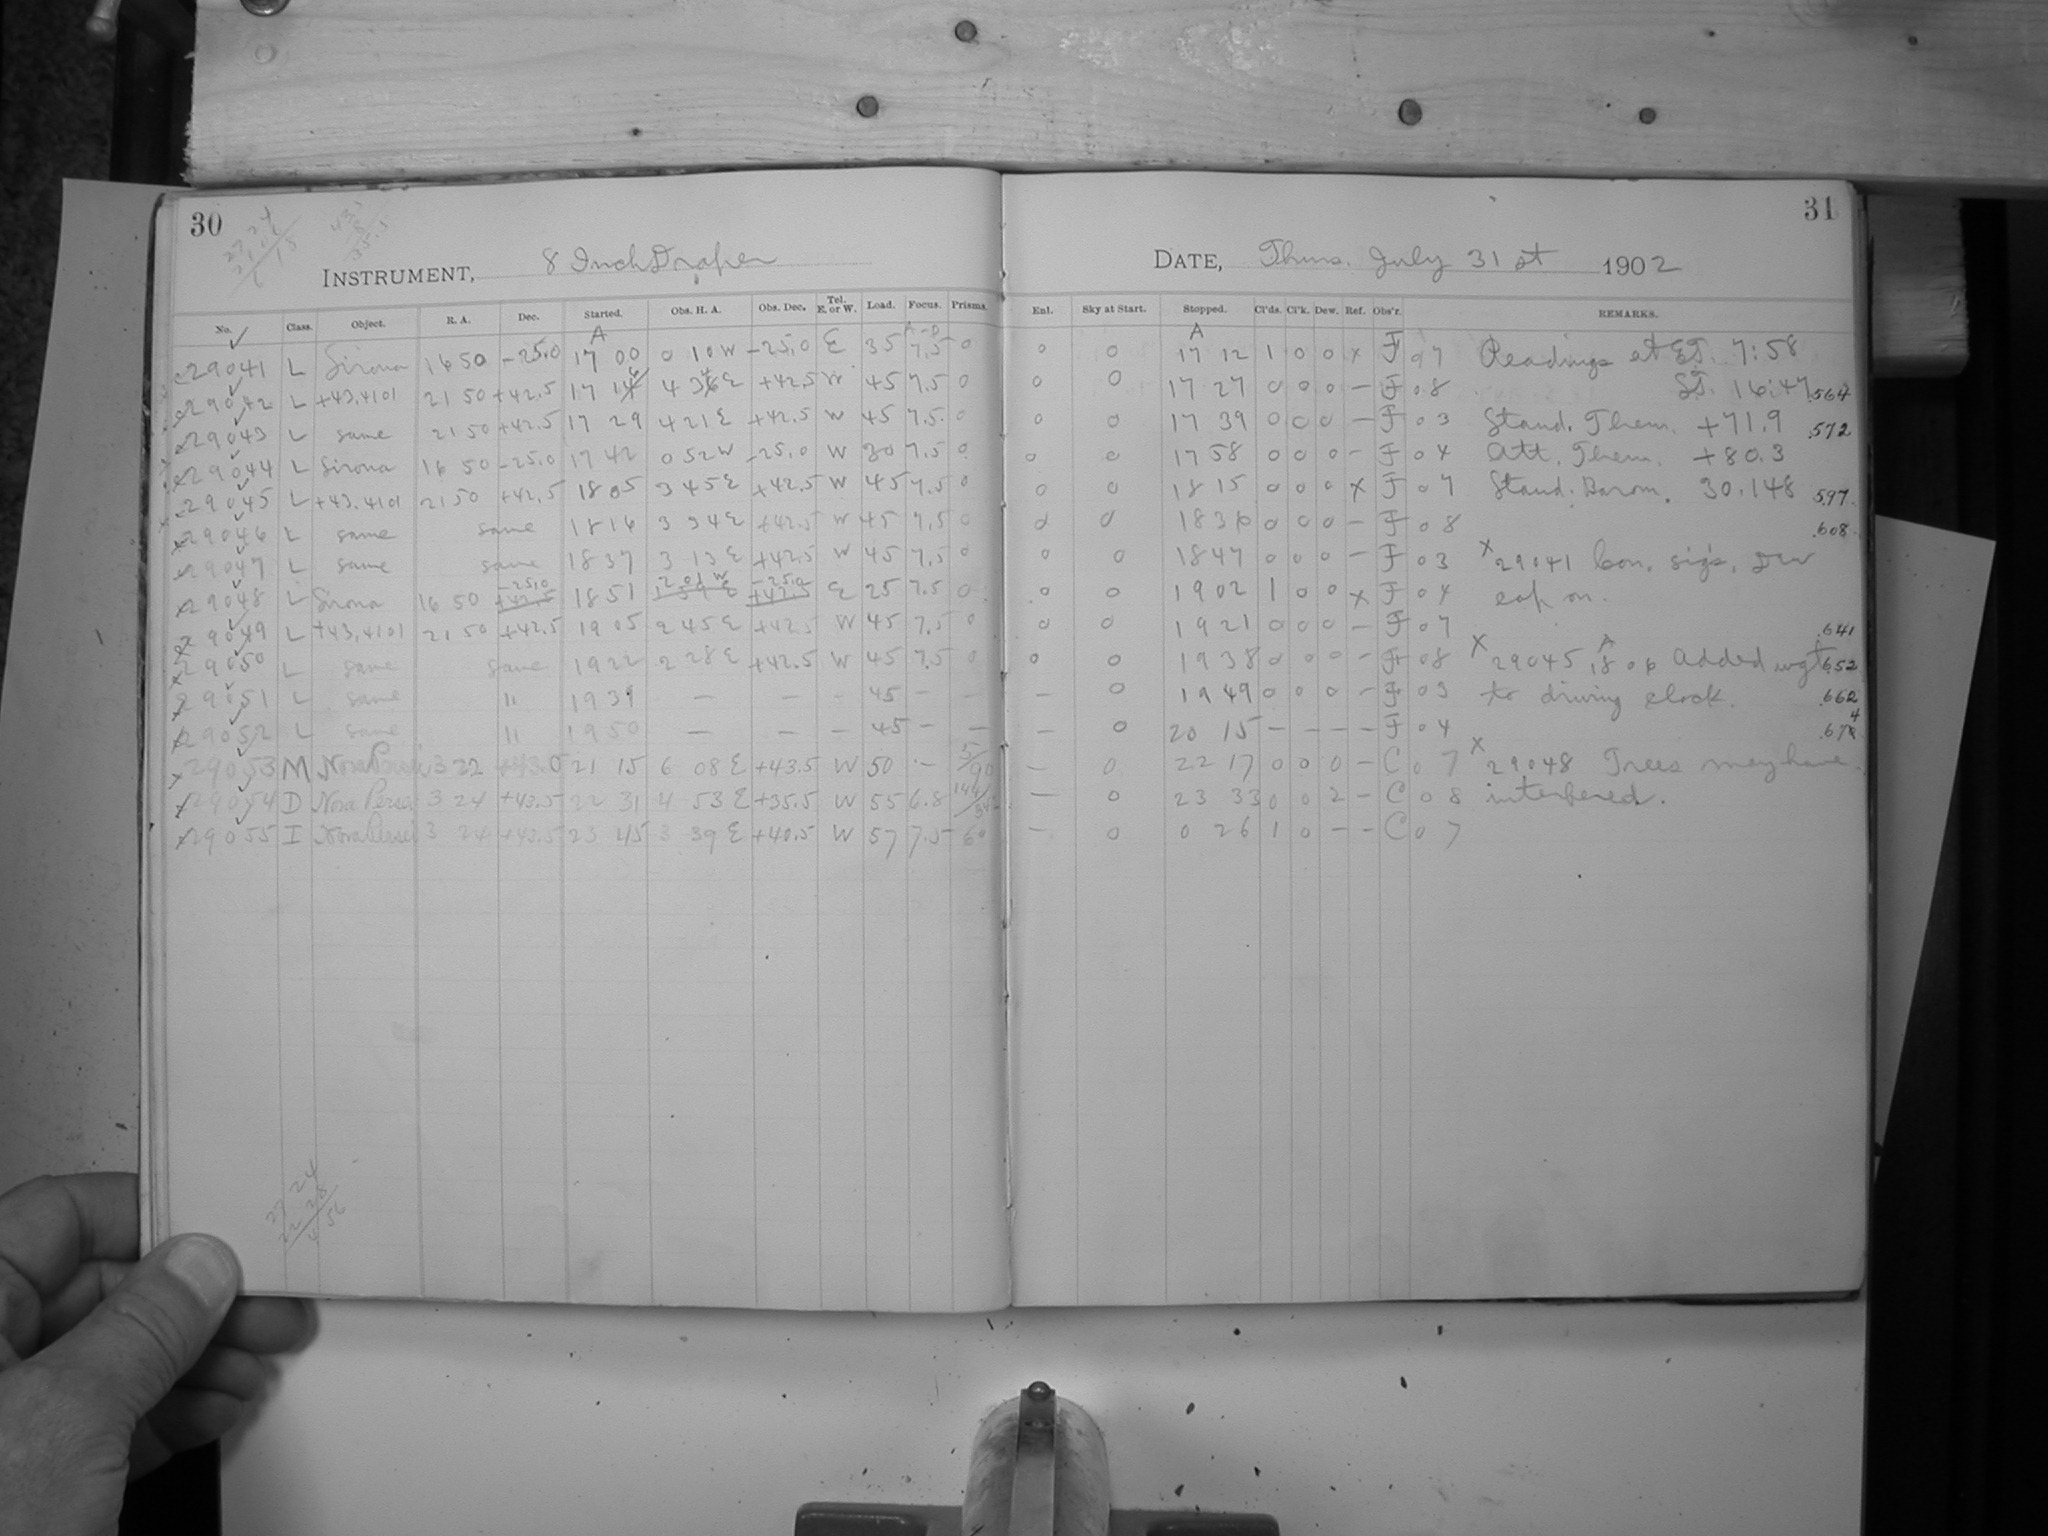 30
INSTRUMENT, 8 Inch Draper
No. Class. Object. R. A. Dec. Started. Obs. H. A. Obs. Dec. Tel. E. or W. Load. Focus. Prisms.
A A-D
29041 L Sirona 16 50 -25.0 17 00 0 10 W -25.0 E 35 7.5 0
29042 L +43.4101 21 50 +42.5 17 16 4 34 E +42.5 W 45 7.5 0
29043 L same 21 50 +42.5 17 29 4 21 E +42.5 W 45 7.5 0
29044 L Sirona 16 50 -25.0 17 42 0 52 W -25.0 W 30 7.5 0
29045 L +43.4101 21 50 +42.5 18 05 3 45 E +42.5 W 45 7.5 0
29046 L same same 18 16 3 34 E +42.5 W 45 7.5 0
29047 L same same 18 37 3 13 E +42.5 W 45 7.5 0
29048 L Sirona 16 50 -25.0 18 51 2 01 W -25.0 E 25 7.5 0
29049 L +43.4101 21 50 +42.5 19 05 2 45 E +42.5 W 45 7.5 0
29050 L same same 19 22 2 28 E +42.5 W 45 7.5 0
29051 L same " 19 39 — — - 45 — —
29052 L same " 19 50 — — — 45 — —
29053 M Nova Persei 3 22 +43.0 21 15 6 08 E +43.5 W 50 — 5/90
29054 D Nova Persei 3 24 +43.5 22 31 4 53 E +35.5 W 55 6.8
29055 I Nova Persei 3 24 +43.5 23 45 3 39 E +40.5 W 57 7.5 60
27 24
22 28
4 56
31
DATE, Thurs. July 31st 1902
Enl. Sky at Start. Stopped. Cl'ds. Cl'k. Dew. Ref. Obs'r. REMARKS.
A
0 0 17 12 1 0 0 x F 07 Readings at E.T. 7:58
0 0 17 27 0 0 0 - F 08 S.T. 16:47 .564
0 0 17 39 0 0 0 - F 03 Stand. Therm. +71.9 .572
0 0 17 58 0 0 0 - F 04 Att. Therm. +80.3
0 0 18 15 0 0 0 x F 07 Stand. Barom. 30.148 .597
0 0 18 36 0 0 0 - F 08 .608
0 0 18 47 0 0 0 - F 03 x 29041 Con. sig's, Dew
0 0 19 02 1 0 0 x F 04 cap on.
0 0 19 21 0 0 0 - F 07 .641
0 0 19 38 0 0 0 - F 08 x 29045 18 06 Added wgt .652
— 0 19 49 0 0 0 - F 03 to driving clock. .662
— 0 20 15 - - - - F 04 .674
— 0 22 17 0 0 0 - C 07 x 29048 Trees may have
— 0 23 33 0 0 2 - C 08 interfered.
— 0 0 26 1 0 - - C 07